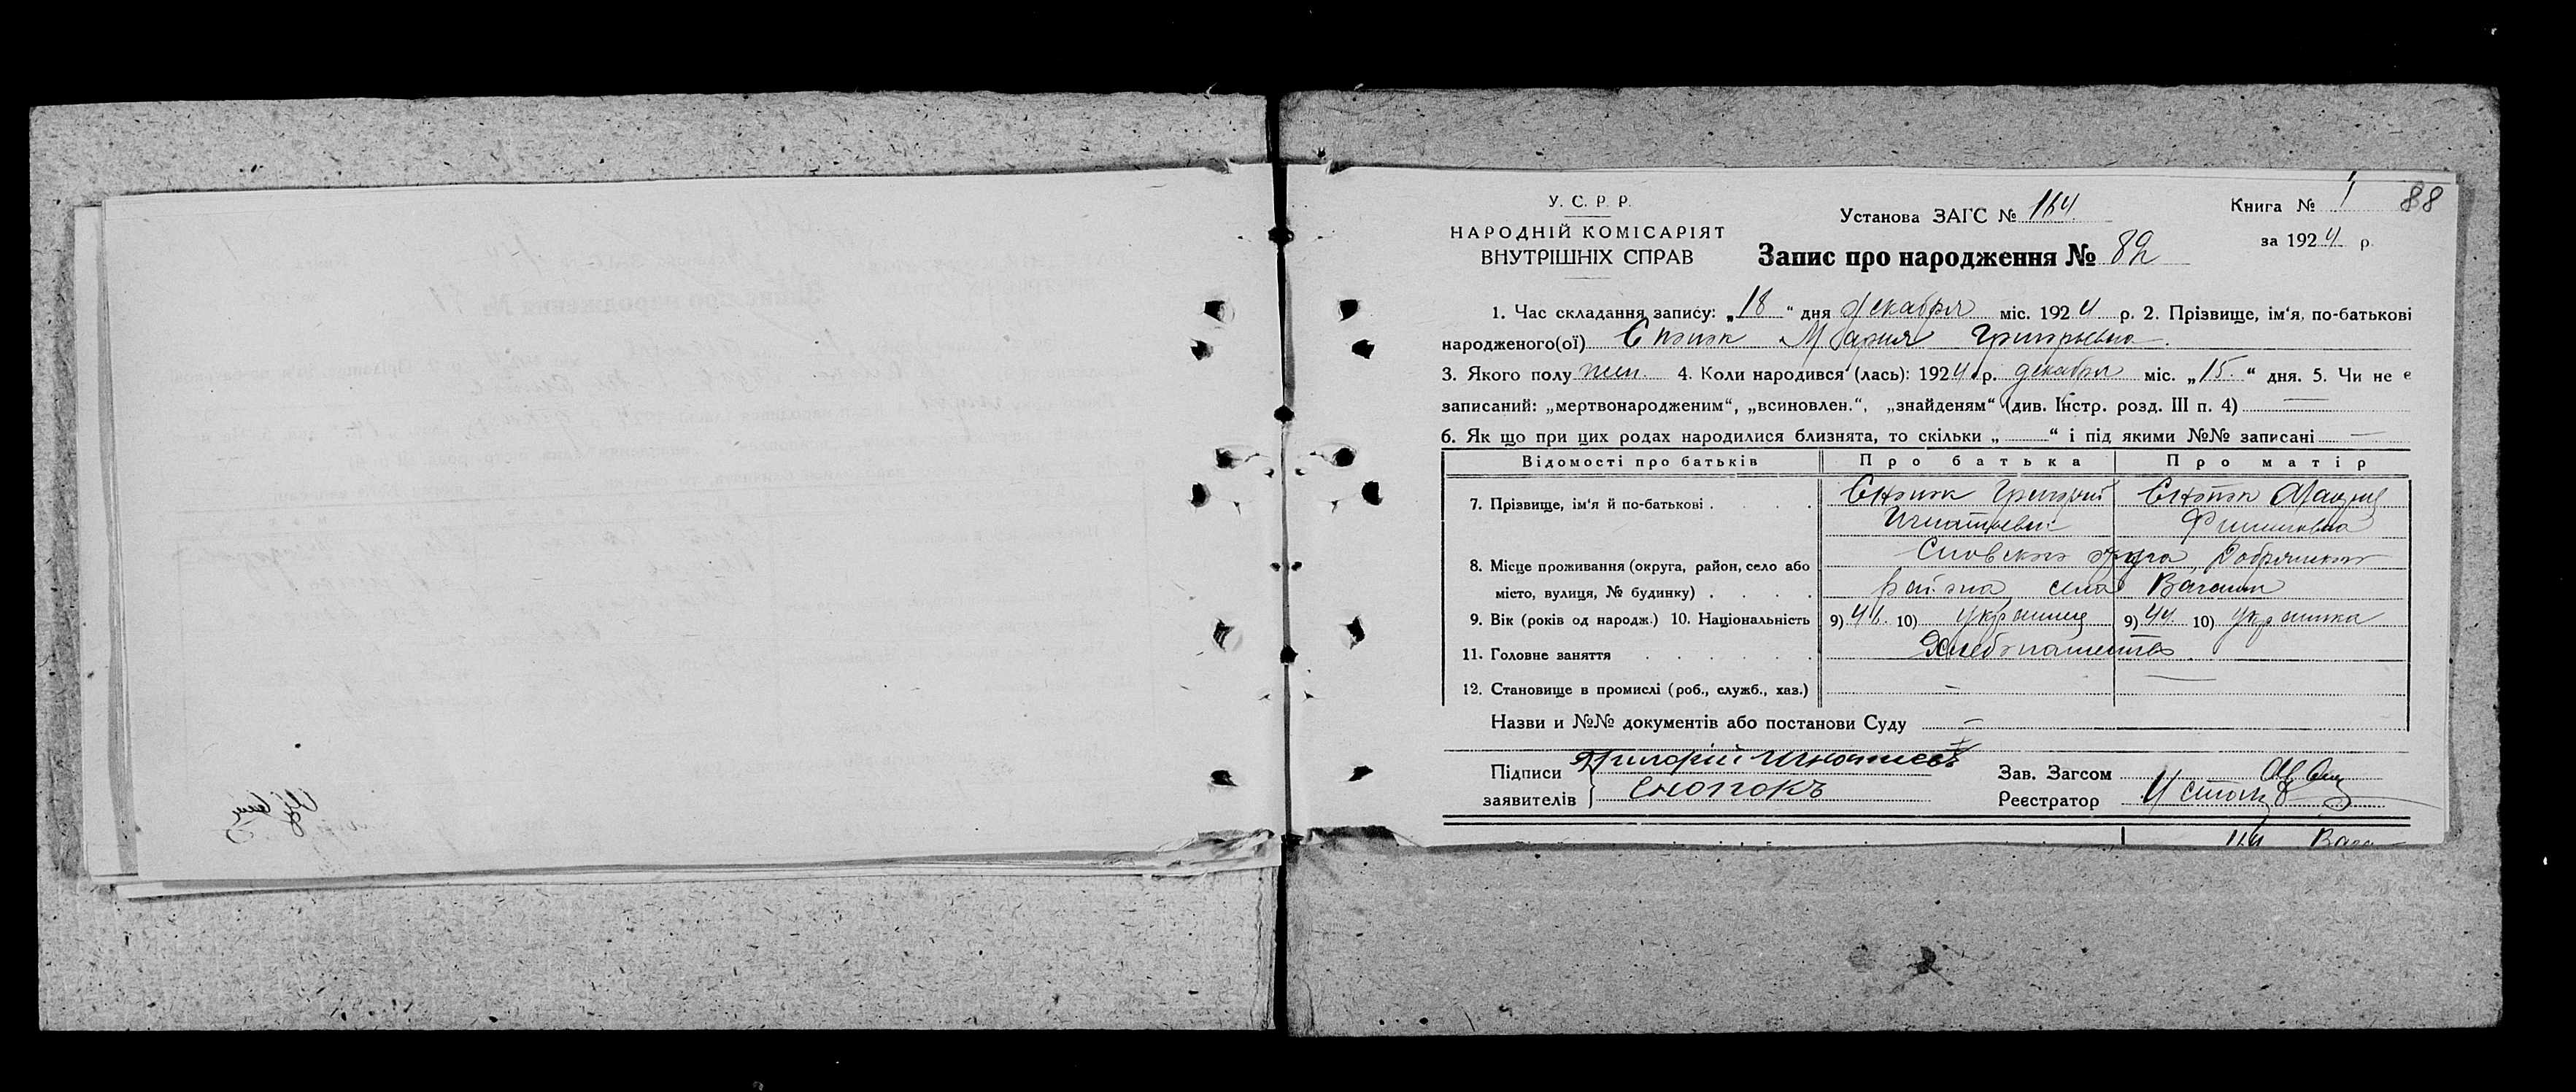 У. С. Р. Р.
НАРОДНІЙ КОМІСАРІЯТ
ВНУТРІШНІХ СПРАВ
Установа ЗАГС № 164
Запис про народження № 82
Книга № 1 88
за 1924 р.
1. Час складання запису: „18“ дня декабря міс. 1924 р. 2. Прізвище, ім‘я, по-батькові
народженого(ої) Снопок Мария Григорьевна.
3. Якого полу жен. 4. Коли народився (лась): 1924 р. декабря міс. „15.“ дня. 5. Чи не є
записаний: „мертвонародженим“, „всиновлен.“, „знайденям“ (див. Інстр. розд. III п. 4) —
6. Як що при цих родах народилися близнята, то скільки „ “ і під якими №№ записані —
Відомості про батьків Про батька Про матір
7. Прізвище, ім‘я й по-батькові . . . . Снопок Григорий Снопок
Игнатьевич Филиповна
8. Місце проживання (округа, район, село або Сновского округа, Добрянского
місто, вулиця, № будинку) . . . . района села Ваганич
9. Вік (років од народж.) 10. Національність 9) 10) украинец 9) 44. 10) украинка
11. Головне заняття . . . . . . Хлебопашество
12. Становище в промислі (роб., служб., хаз.) — —
Назви и №№ документів або постанови Суду —
Підписи Григорій Игнатиевъ
заявителів Снопокъ
Зав. Загсом
Реєстратор
164 Вага